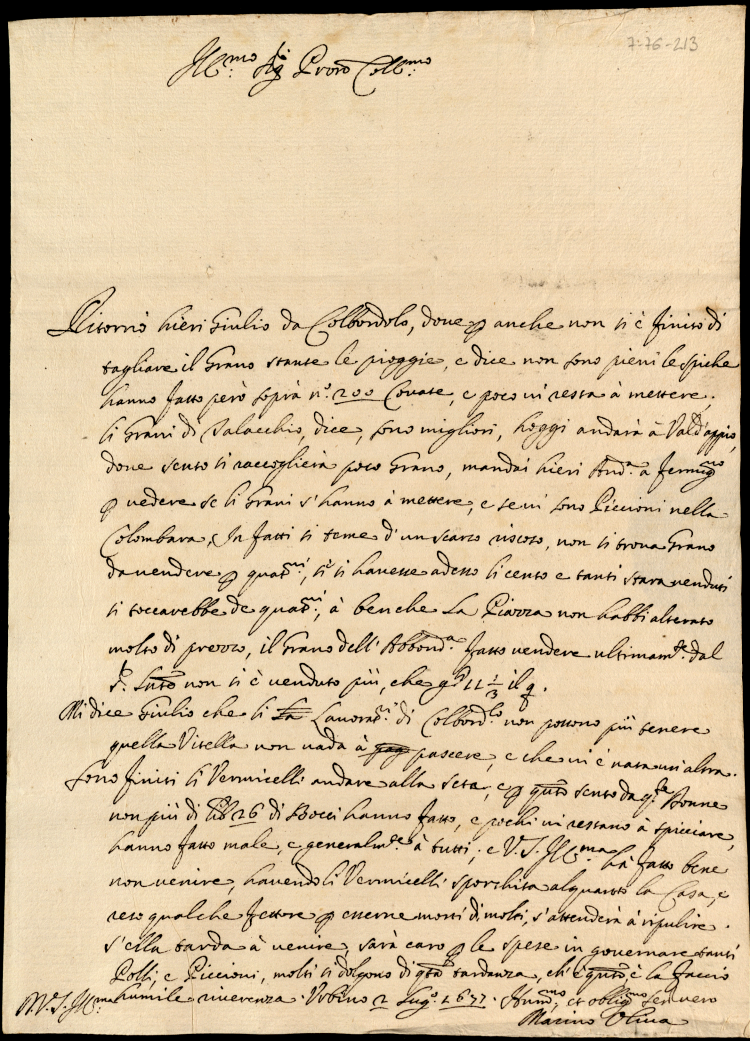 7-76-213
Ill:mo Sig Prorõ Coll:mo
Ritornò hieri Giulio da Colbordolo, dove p anche non si è finito di
tagliare il Grano stante le pioggie, e dice non sono pieni le spiche
hanno fatto però soprà n.º 200 Covate, e poco vi resta à mettere,
li Grani di Salacchio, dice, sono migliori, hoggi andarà à Vald'appio,
dove sento si raccoglierà poco Grano, mandai hieri And.a à Fermig.no
p vedere se li Grani s'hanno à mettere, e se vi sono Piccioni nella
Colombara, In fatti si teme d'un scarso riscoso, non si trova Grano
da vendere p quat.ni, si si havesse adesso li cento e tanti stara venduti
si toccarebbe de quat.ni, à benche la Piazza non habbi alterato
molto di prezzo, il Grano dell'Abbond.a fatto vendere ultimam.te dal
non si è venduto più, che 11 1/3 il q.
Mi dice Giulio che li La Lavorat.ri di Colbord.lo non possono più tenere
quella Vitella non vada à pag pascere, e che vi è nata un'altra.
sono finiti li Vermicelli andare alla seta, e p q.nto sento da q.te Donne
non più di lib 26 di Bocci hanno fatto, e pochi vi restano à spicciare,
hanno fatto male, e generalm.te à tutti; e V.S. Ill:ma hà fatto bene
non venire, havendo li Vermicelli sporchita alquanto la Casa, e
reso qualche fettore p esserne morti di molti, s'attenderà à ripulire.
s'ella tarda à venire, sarà caro p le spese in governare tanti
Polli, e Piccioni, molti si dolgono di q.ta tardanza, ch'è q.nto e la faccio
humile riverenza. Urbino 2 Lug.º 1677.
D.V.S. Ill:ma Hum.mo, et oblig.mo servero
Marino Oliva